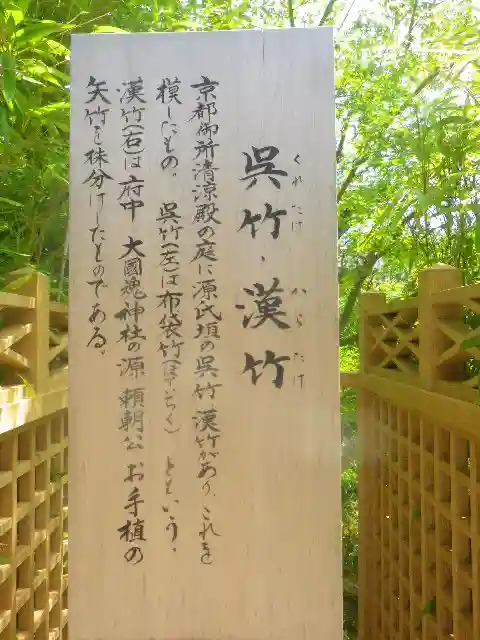 呉竹・漢竹
くれたけ
からたけ
京都御所清涼殿の庭に源氏頃の呉竹漢竹があり、これを
模したもの。呉竹(左)は布袋竹(ほていちく)ともいう。
漢竹(右)は府中 大國魂神社の源 頼朝公 お手植の
矢竹を株分けしたものである。